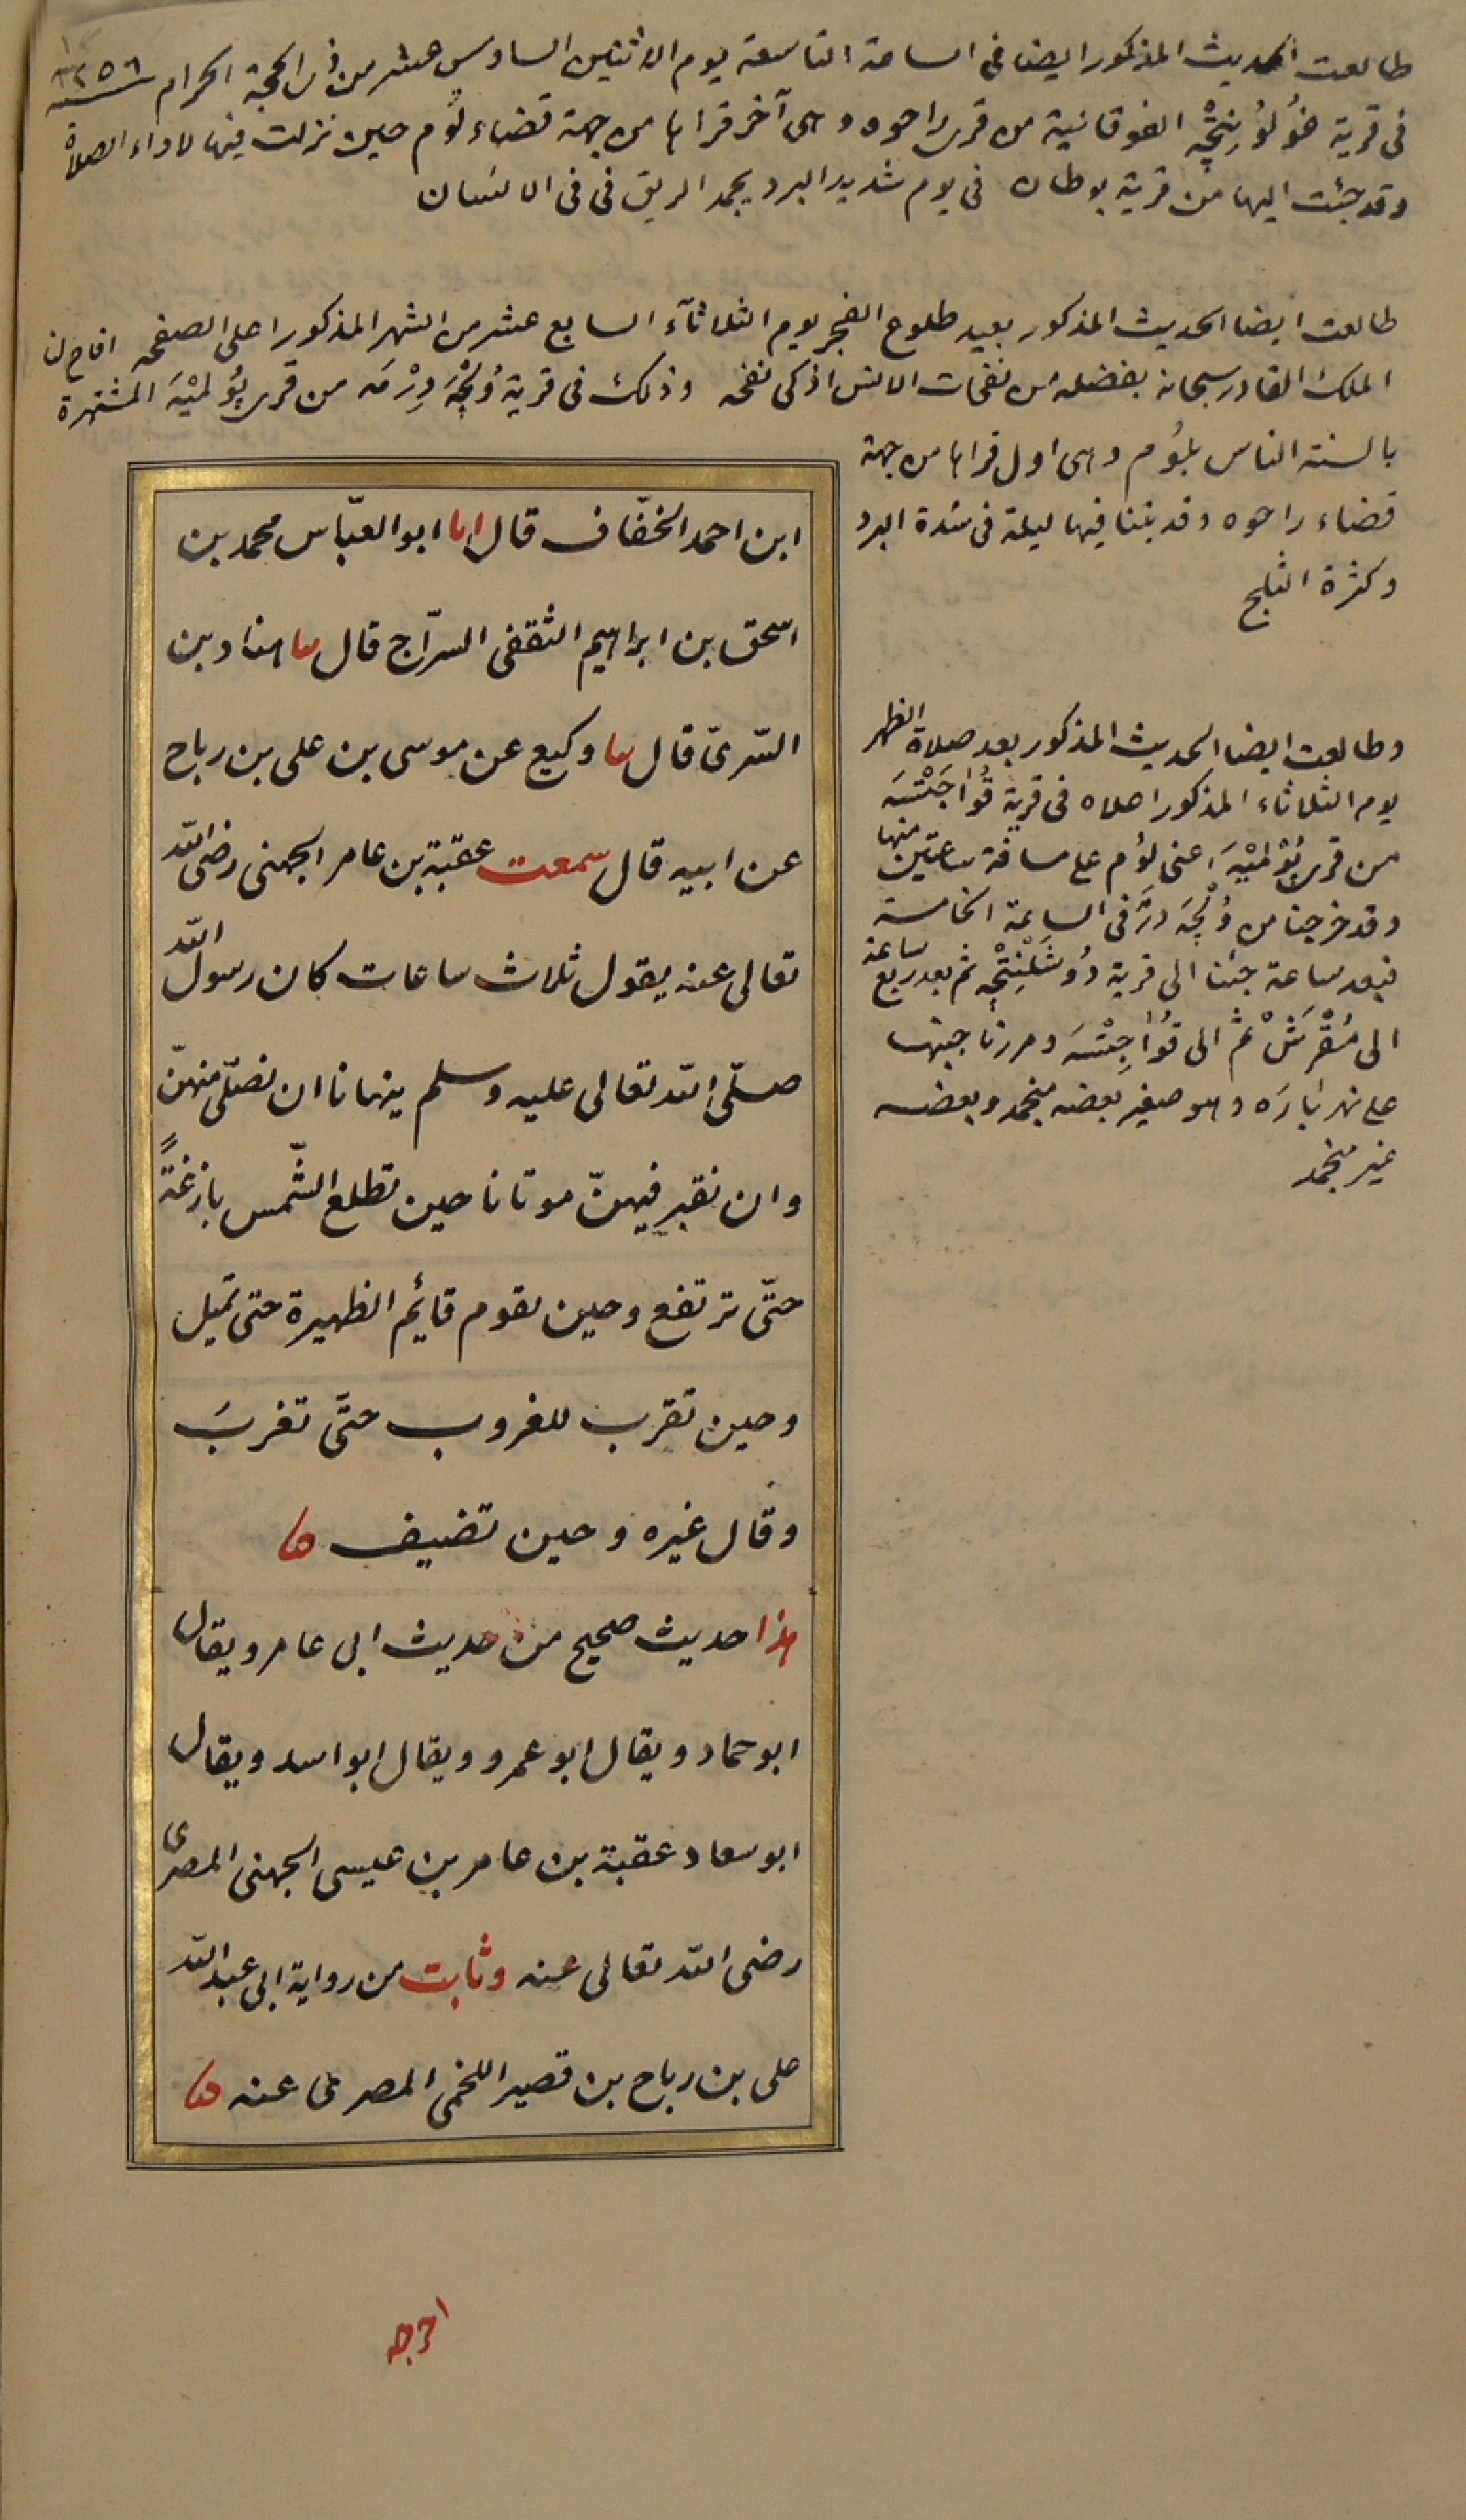 طالعت الحديث المذكور ايضا فى الساعة التاسعة يوم الاثنين السادس عشر من ذى الحجة الحرام سنة ١٢٥٦
فى قرية الفوقانية من قرى راحوه وهى آخر قراها من جهة قضاء لوم حين نزلت فيها لاداء الصلاة
وقد جئت اليها من قرية بوطان فى يوم شديد البرد يجمد الريق فى فى الانسان
طالعت ايضا الحديث المذكور بعيد طلوع الفجر يوم الثلاثآء السابع عشر من الشهر المذكور اعلى الصفحه افاح لنا
الملك القادر سبحانه بفضله من نفحات الانس اذكى نفحه وذلك فى قرية من قرى المشتهرة
بالسنة الناس بلوم وهى اول قراها من جهة
قضاء راحوه وقد بتنا فيها ليلة فى شدة البرد
وكثرة الثلج
وطالعت ايضا الحديث المذكور بعد صلاة الظهر
يوم الثلاثاء المذكور اعلاه فى قرية
من قرى اعنى لوم على مسافة ساعتين منها
وقد خرجنا من فى الساعة الخامسة
فبعد ساعة جئنا الى قرية ثم بعد ربع ساعة
الى ثم الى ومررنا
على نهر وهو صغير بعضه منجمد وبعضه
غير منجمد
ابن احمد الخفّاف قال انا ابو العبّاس محمد بن
اسحق بن ابراهيم الثقفى السرّاج قال ثنا هناد بن
السّرىّ قال ثنا وكيع عن موسى بن على بن رباح
عن ابيه قال سمعت عقبة بن عامر الجهنى رضى الله
تعالى عنه يقول ثلاث ساعات كان رسول الله
صلّى الله تعالى عليه وسلم ينهانا ان نصلّى منهنّ
وان نقبر فيهنّ موتانا حين تطلع الشّمس بازغةً
حتّى ترتفع وحين يقوم قائم الظهيرة حتى تميل
وحين تقرب للغروب حتّى تغربَ
وقال غيره وحين تضيف
هذا حديث صحيح من حديث ابى عامر ويقال
ابو حماد ويقال ابو عمرو ويقال ابو اسد ويقال
ابو سعاد عقبة بن عامر بن عيسى الجهنى المصرى
رضى الله تعالى عنه وثابت من رواية ابى عبد الله
على بن رباح بن قصير اللخمى المصرى عنه
اخرجه